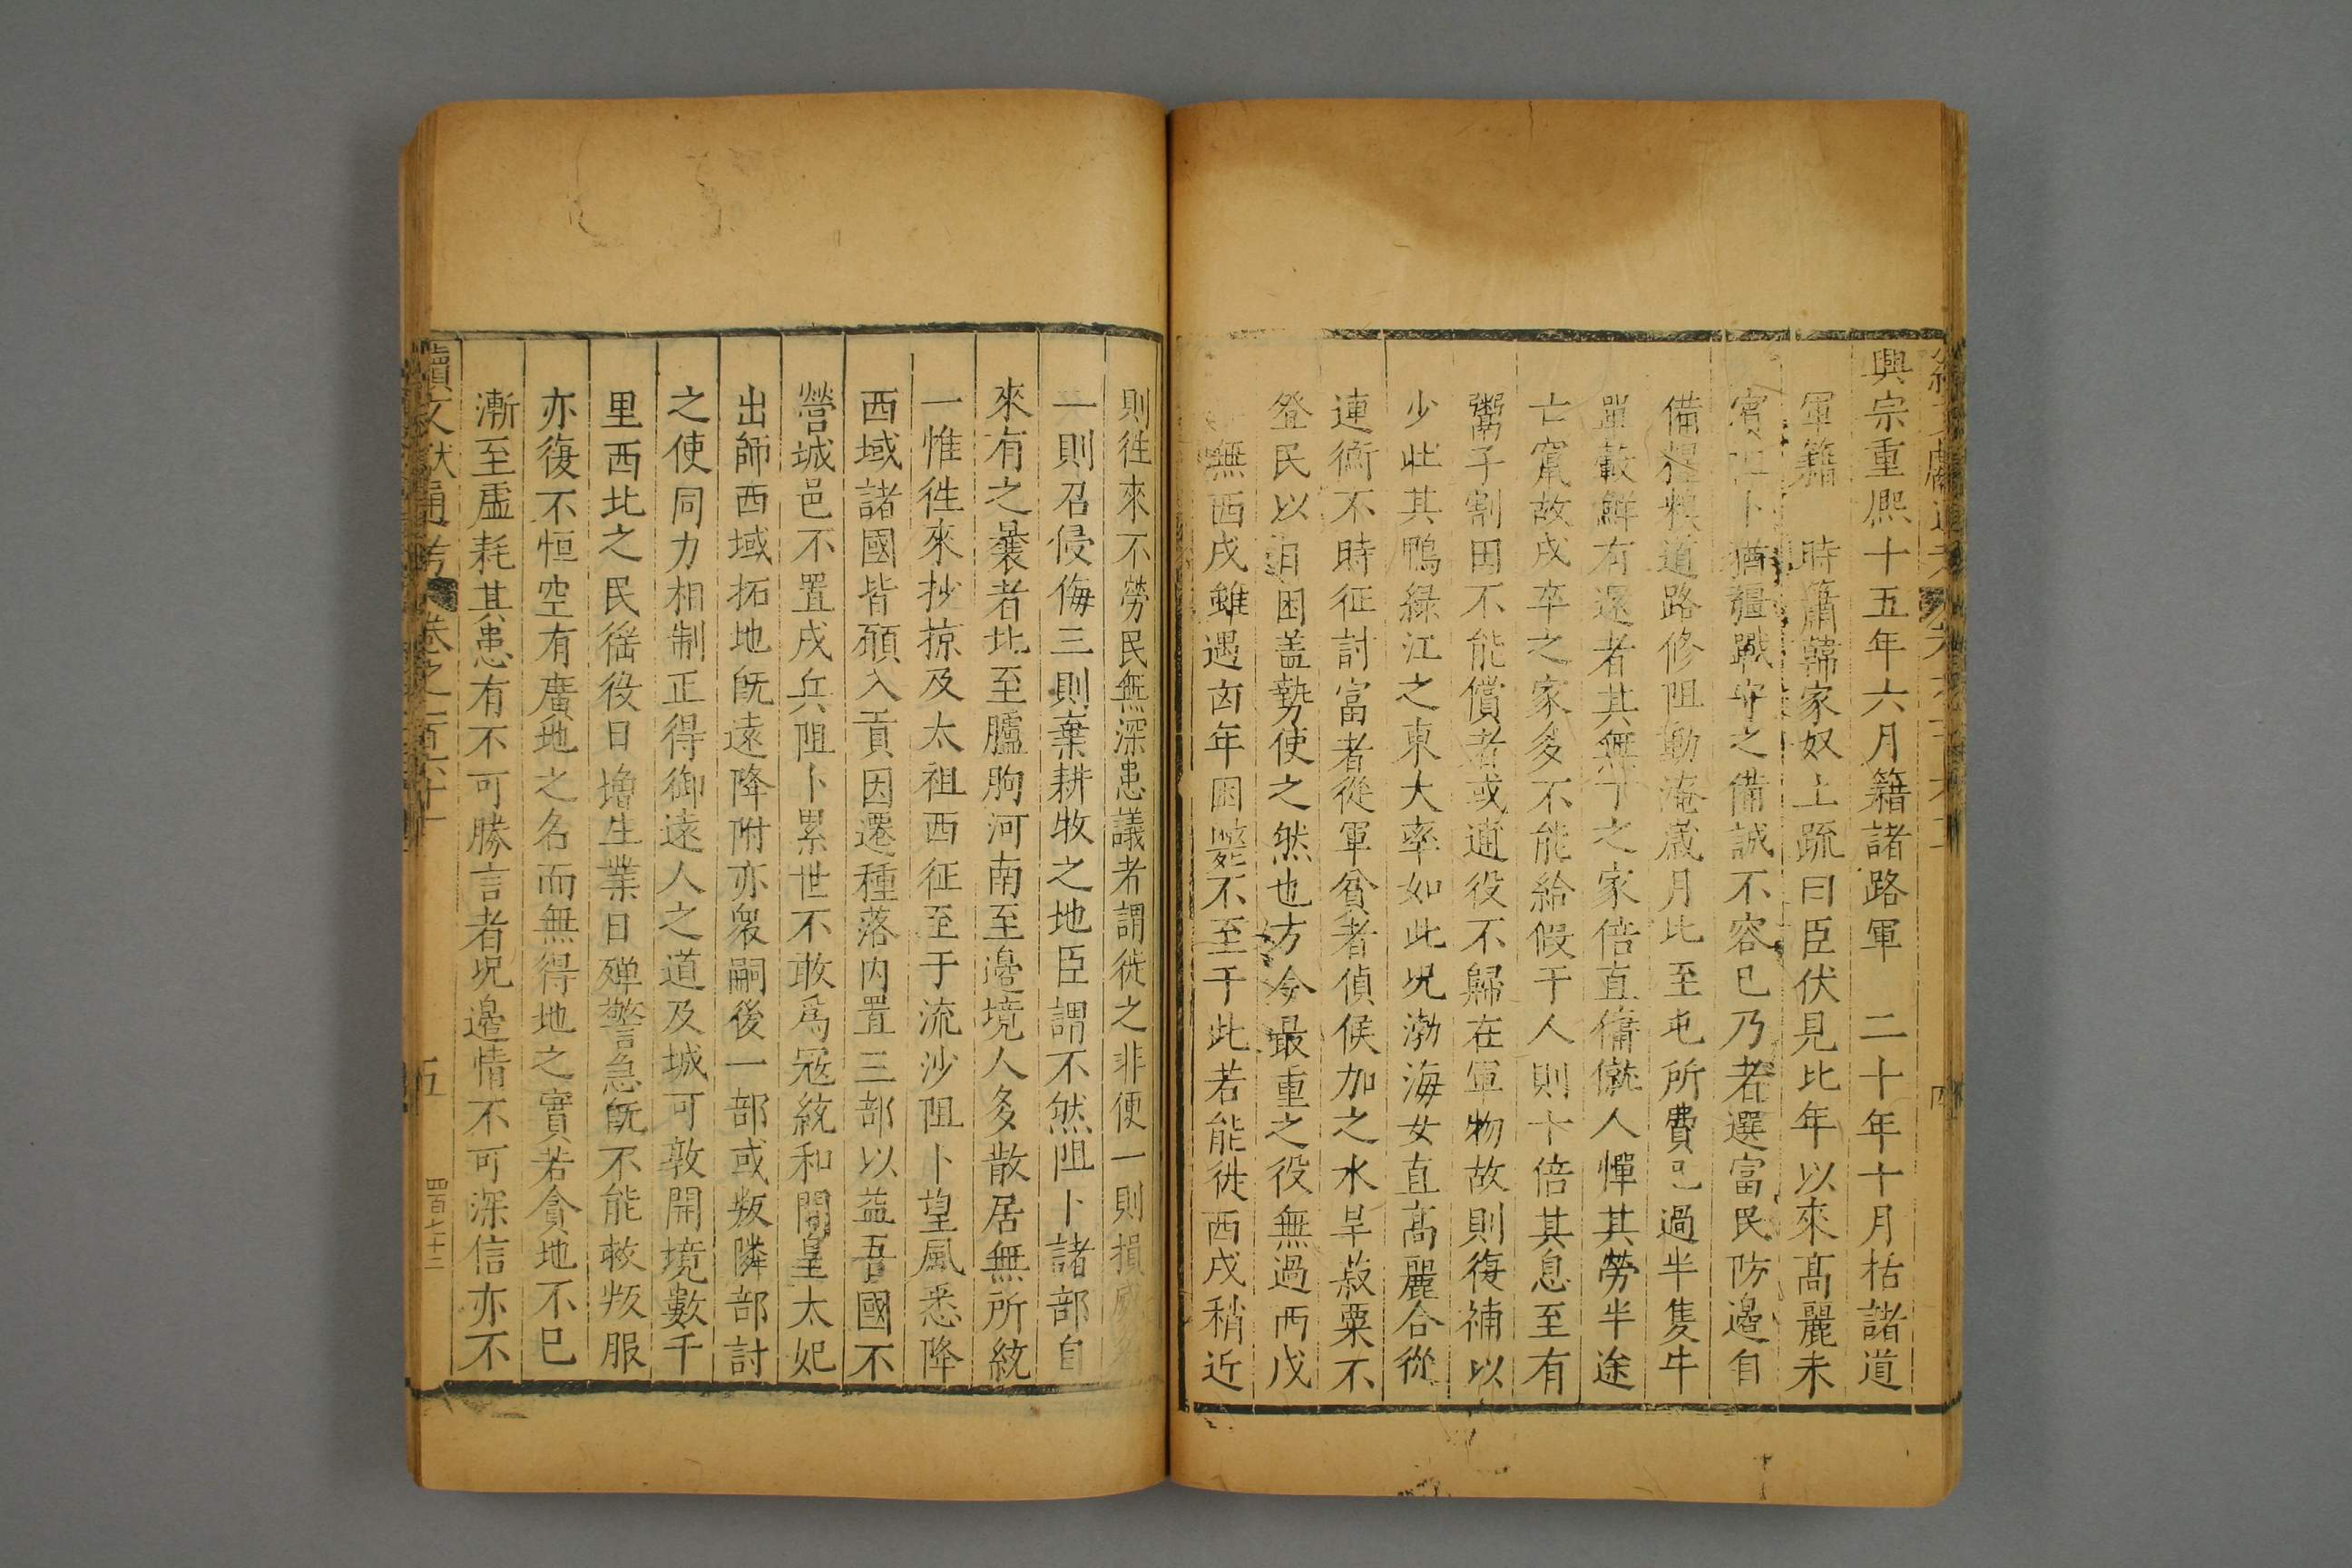 興宗重熙十五年六月籍諸路軍　二十年十月括諸道
軍籍　時蕭韓家奴上疏曰臣伏見比年以來髙麗未
賔阻卜猶疆戰守之備誠不容已乃者選富民防邉自
備糧糗道路修阻動淹歳月比至屯所費已過半隻牛
單轂鮮有還者其無丁之家倍直傭僦人憚其勞半途
亡竄故戍卒之家多不能給假于人則十倍其息至有
鬻子割田不能償者或逋役不歸在軍物故則復補以
少壯其鴨緑江之東大率如此况渤海女直髙麗合從
連衡不時征討富者從軍貧者偵候加之水旱菽粟不
登民以日困盖勢使之然也方今最重之役無過西戍
無西戍雖遇凶年困斃不至于此若能徙西戍稍近
則徃來不勞民無深患議者謂徙之非便一則損威
二則召侵侮三則棄耕牧之地臣謂不然阻卜諸部自
來有之曩者北至臚朐河南至邉境人多散居無所統
一惟徃來抄掠及太祖西征至于流沙阻卜望風悉降
西域諸國皆願入貢因遷種落内置三部以益吾國不
營城邑不置戍兵阻卜累世不敢爲冦統和間皇太妃
出師西域拓地既遠降附亦衆嗣後一部或叛隣部討
之使同力相制正得御遠人之道及城可敦開境數千
里西北之民徭役日增生業日殫警急既不能救叛服
亦復不恒空有廣地之名而無得地之實若貪地不已
漸至虚耗其患有不可勝言者况邉情不可深信亦不
續文獻通考　卷之一百六十一　五　四百七十二